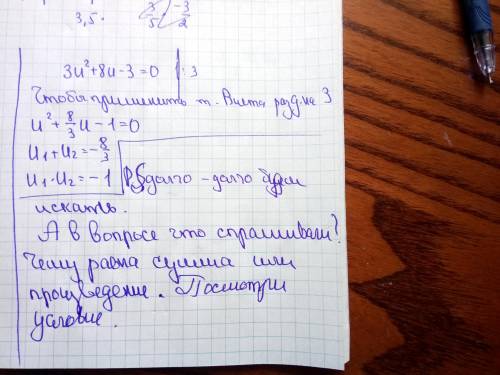 3,5 · 3/5 · -3/2
3u²+8u-3=0 | : 3
Чтобы применить т. Виета разд. на 3
u²+8/3u-1=0
u₁+u₂=-8/3
u₁·u₂=-1 долго-долго будем
искать.
А в вопросе что спрашивали?
Чему равна сумма или
произведение. Посмотри
условие.